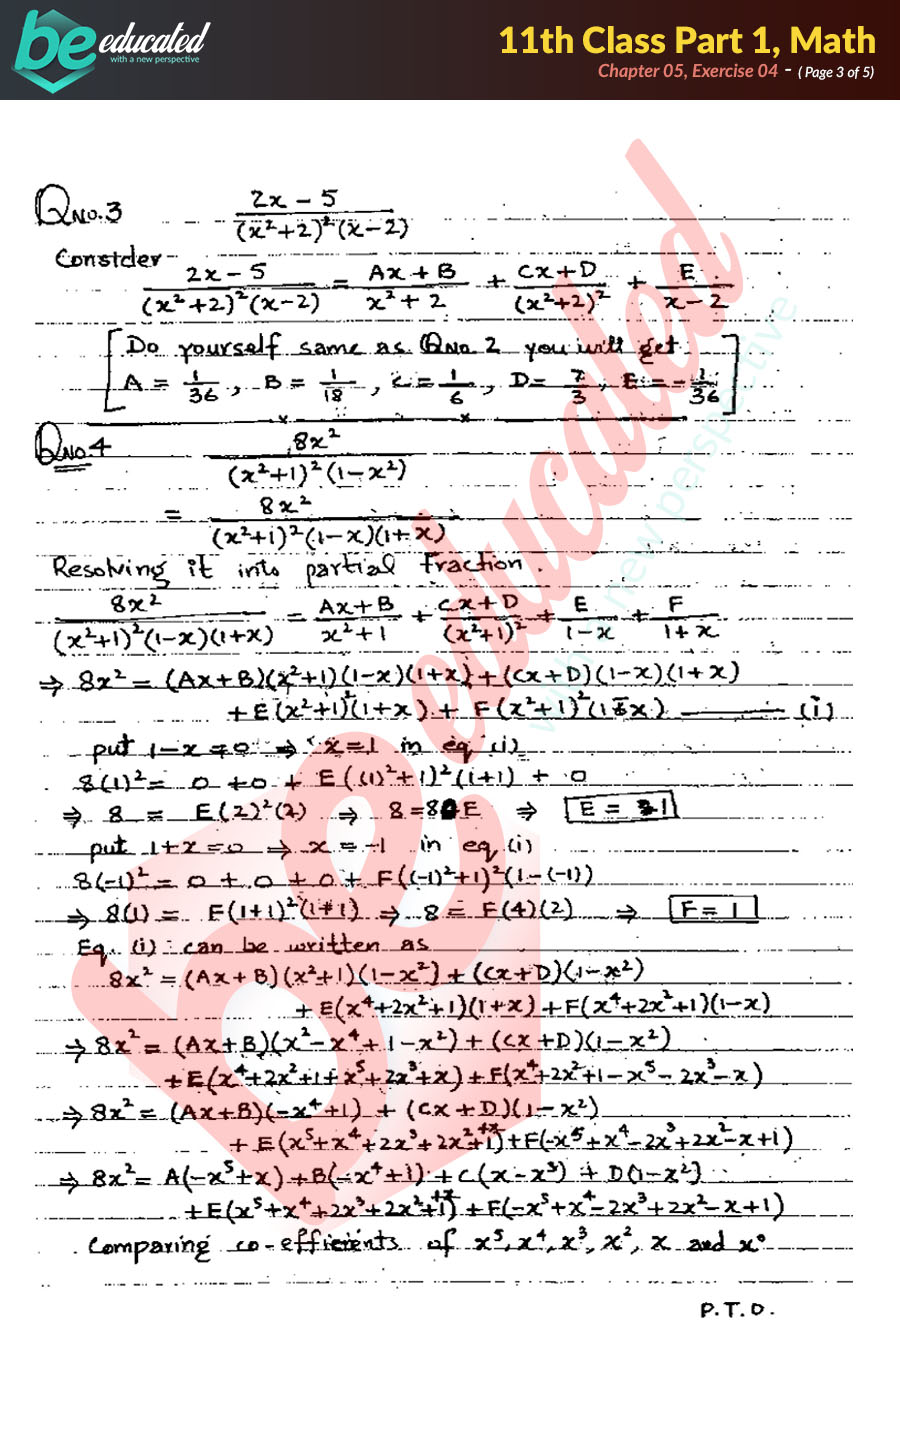 be educated
with a new perspective
11th Class Part 1, Math
Chapter 05, Exercise 04 - ( Page 3 of 5)
QNO.3 (2x - 5)/((x²+2)²(x-2))
Consider
(2x-5)/((x²+2)²(x-2)) = (Ax+B)/(x²+2) + (Cx+D)/((x²+2)²) + E/(x-2)
[Do yourself same as QNO.2 you will get
A = 1/36, B = 1/18, C = 1/6, D = 7/3, E = -1/36]
QNO.4 8x²/((x²+1)²(1-x²))
= 8x²/((x²+1)²(1-x)(1+x))
Resolving it into partial fraction.
8x²/((x²+1)²(1-x)(1+x)) = (Ax+B)/(x²+1) + (Cx+D)/((x²+1)²) + E/(1-x) + F/(1+x)
⇒ 8x² = (Ax+B)(x²+1)(1-x)(1+x) + (Cx+D)(1-x)(1+x)
+E(x²+1)²(1+x) + F(x²+1)²(1-x) — (i)
put 1-x=0 ⇒ x=1 in eq (i)
8(1)² = 0 +0 + E((1)²+1)²(1+1) + 0
⇒ 8 = E(2)²(2) ⇒ 8=8E ⇒ E = 1
put 1+x=0 ⇒ x = -1 in eq (i)
8(-1)² = 0 + 0 + 0 + F((-1)²+1)²(1-(-1))
⇒ 8(1) = F(1+1)²(1+1) ⇒ 8 = F(4)(2) ⇒ F = 1
Eq. (i) can be written as
8x² = (Ax+B)(x²+1)(1-x²) + (Cx+D)(1-x²)
+E(x⁴+2x²+1)(1+x) + F(x⁴+2x²+1)(1-x)
⇒ 8x² = (Ax+B)(x²-x⁴+1-x²) + (Cx+D)(1-x²)
+E(x⁴+2x²+1+x⁵+2x³+x)+F(x⁴+2x²+1-x⁵-2x³-x)
⇒ 8x² = (Ax+B)(-x⁴+1) + (Cx+D)(1-x²)
+ E(x⁵+x⁴+2x³+2x²+x+1)+F(-x⁵+x⁴-2x³+2x²-x+1)
⇒ 8x² = A(-x⁵+x)+B(-x⁴+1)+C(x-x³) + D(1-x²)
+E(x⁵+x⁴+2x³+2x²+x+1) + F(-x⁵+x⁴-2x³+2x²-x+1)
Comparing co-efficients of x⁵, x⁴, x³, x², x and x⁰
P.T.O.
be educated
with a new perspective